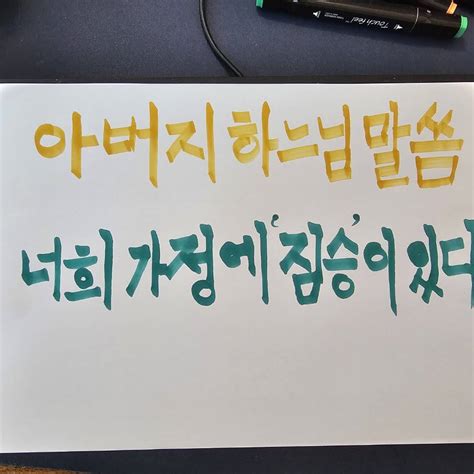 Touch Feel
아버지 하느님 말씀
너희 가정에 '짐승'이 있다